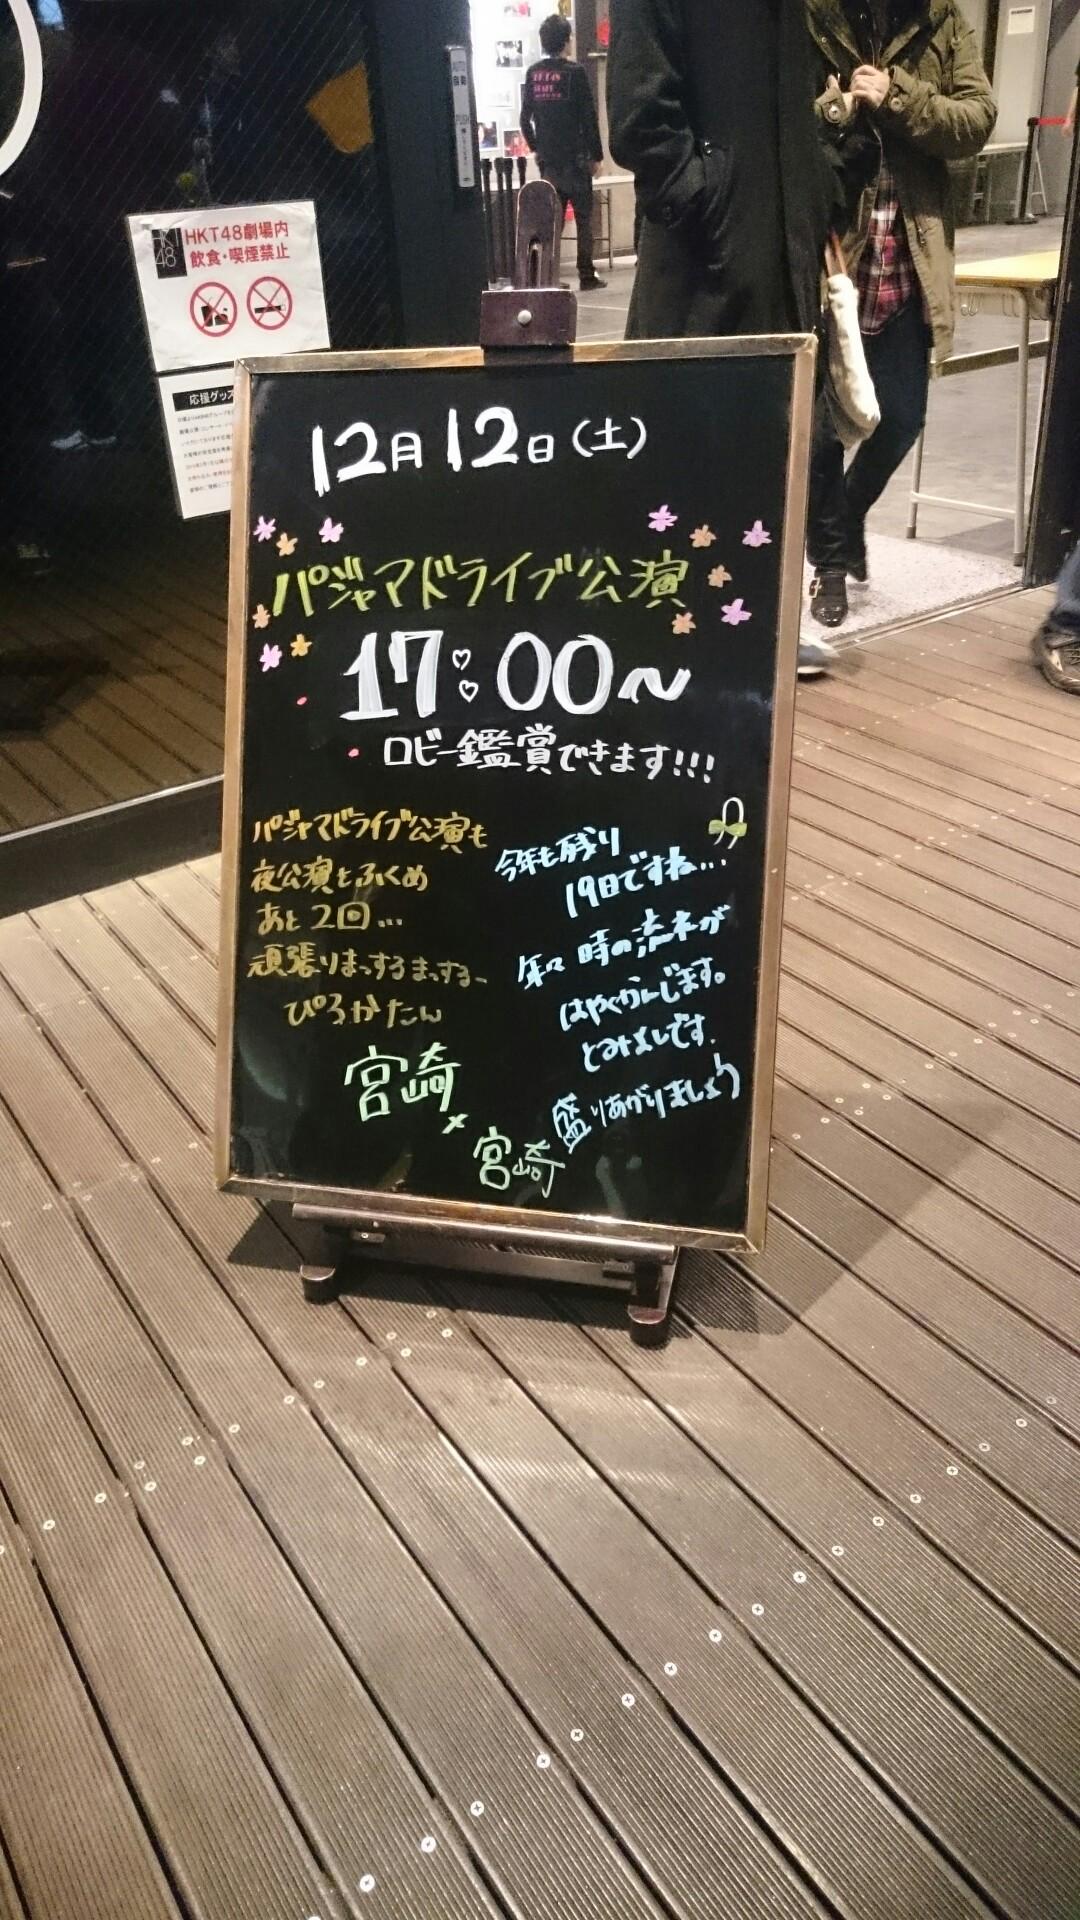 HKT48劇場内
飲食・喫煙禁止
応援グッズ
12月12日(土)
パジャマドライブ公演
17:00~
ロビー鑑賞できます!!!
パジャマドライブ公演も
夜公演とふくめ
あと2回...
頑張りまっするまっするー
ぴろかたん
宮崎
今年も残り
19日ですね...
年々 時の流れが
はやくかんじます。
とみよしです.
盛りあがりましょう
宮崎